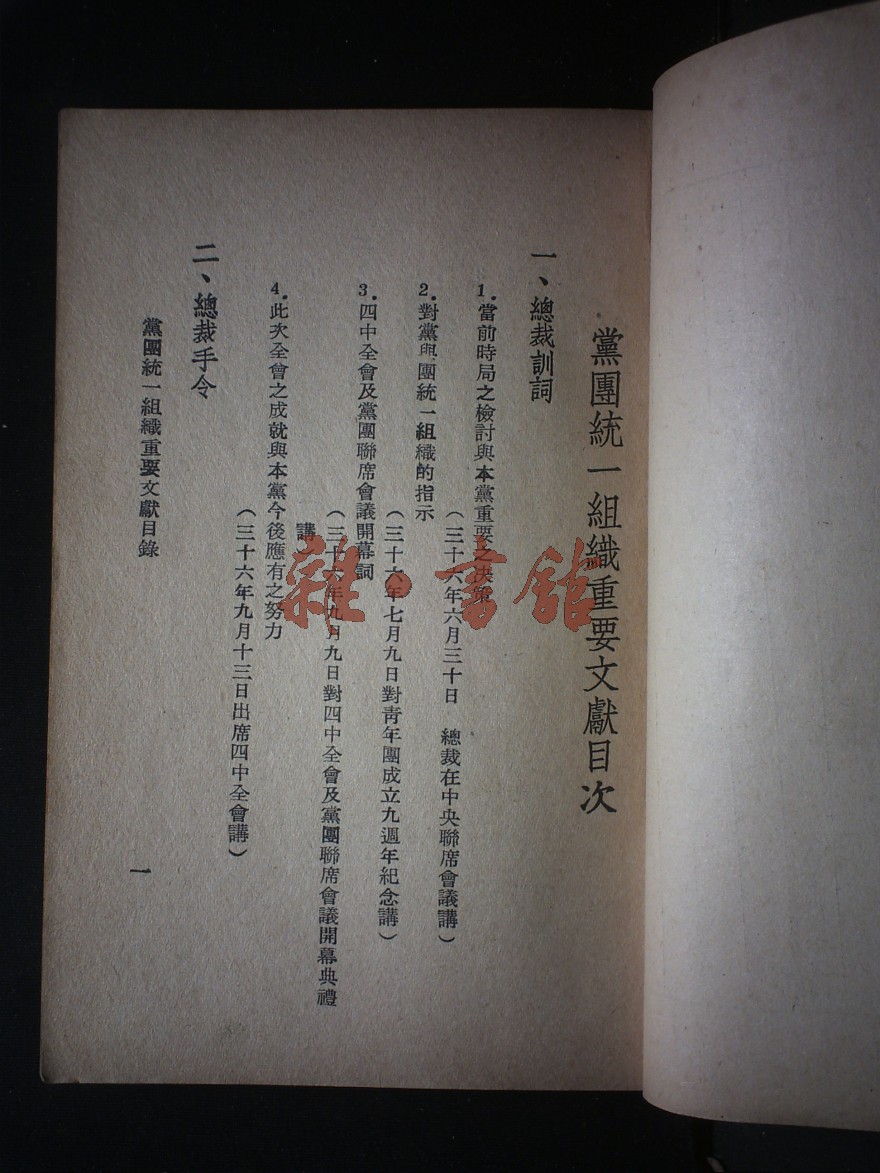 黨團統一組織重要文獻目次
一、總裁訓詞
1.當前時局之檢討與本黨重要之決策
(三十六年六月三十日　總裁在中央聯席會議講)
2.對黨與團統一組織的指示
(三十六年七月九日對青年團成立九週年紀念講)
3.四中全會及黨團聯席會議開幕詞
(三十六年九月九日對四中全會及黨團聯席會議開幕典禮
講)
4.此次全會之成就與本黨今後應有之努力
(三十六年九月十三日出席四中全會講)
二、總裁手令
黨團統一組織重要文獻目錄
一
雜·書館